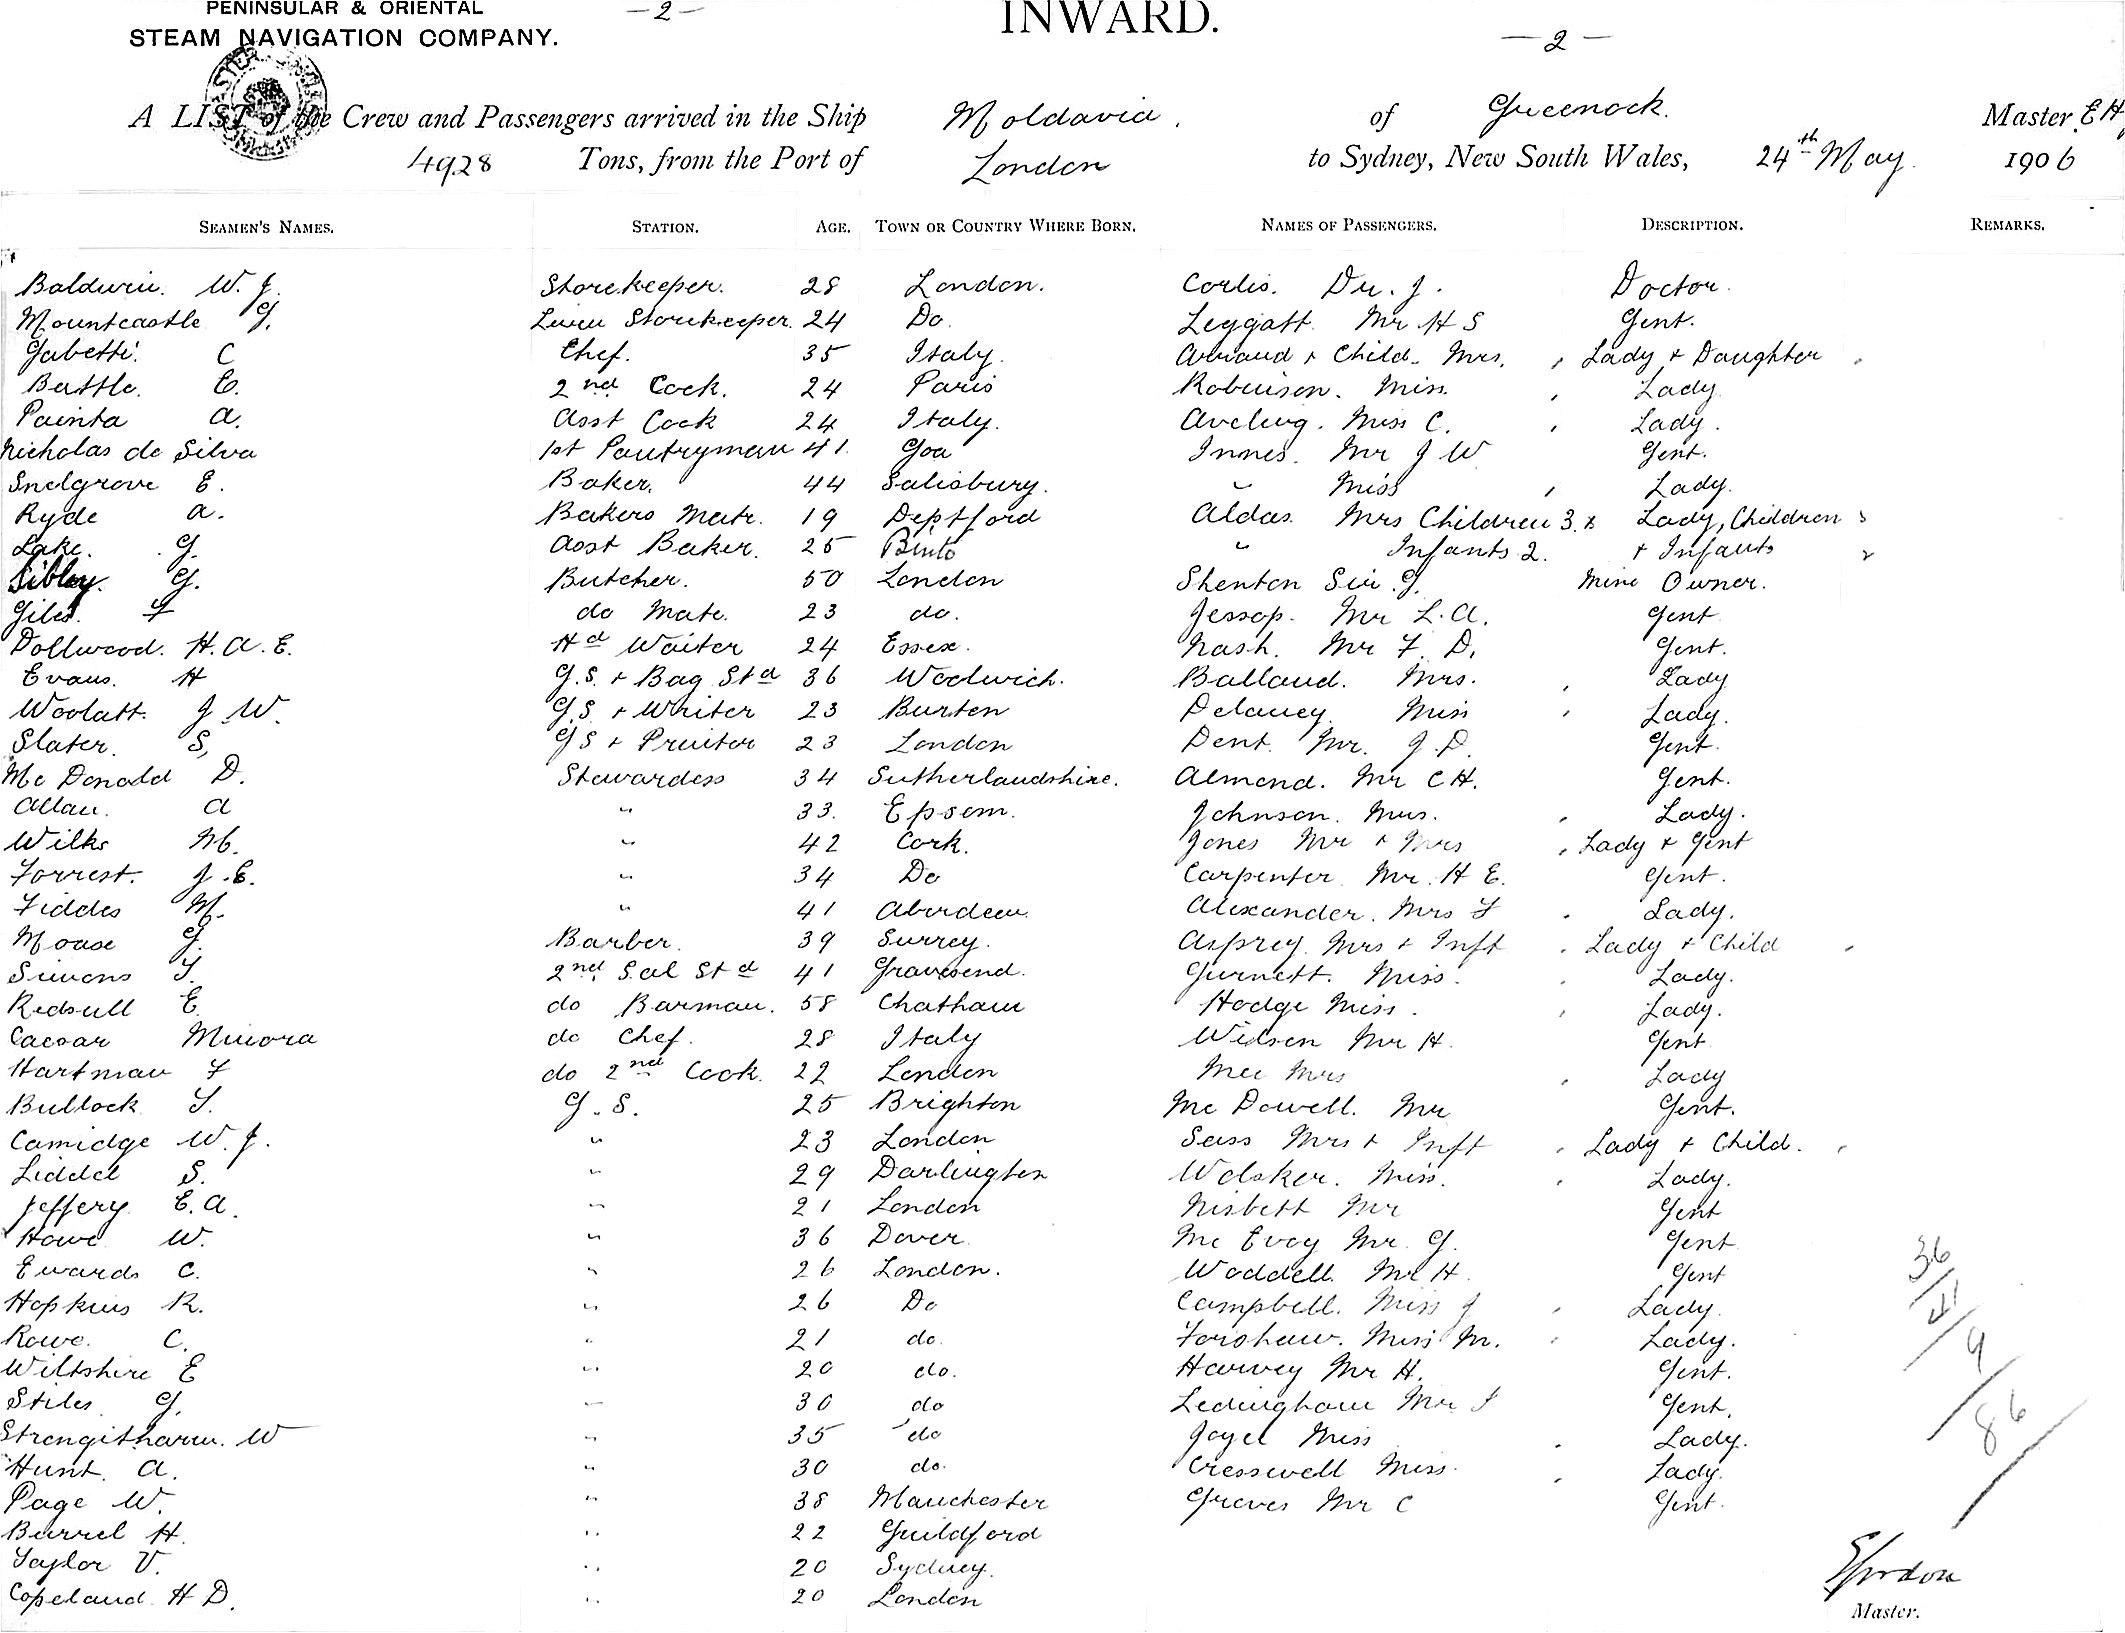 PENINSULAR & ORIENTAL — 2 — INWARD.
STEAM NAVIGATION COMPANY. — 2 —
A LIST of the Crew and Passengers arrived in the Ship Moldavia. of Greenock. Master E H
4928 Tons, from the Port of London to Sydney, New South Wales, 24th May. 1906
SEAMEN'S NAMES. STATION. AGE. TOWN OR COUNTRY WHERE BORN. NAMES OF PASSENGERS. DESCRIPTION. REMARKS.
Baldwin. W. J. Storekeeper. 28 London. Corlis. Dr. J. Doctor.
Mountcastle G. Linen Storekeeper. 24 Do. Leggatt. Mr H S Gent.
Gabetti. C Chef. 35 Italy. & Child. Mrs. Lady & Daughter
Battle. E. 2nd Cook. 24 Paris Robinson. Miss. Lady
Painta A. Asst Cook 24 Italy. Aveling. Miss C. Lady.
Nicholas de Silva 1st Pantryman 41. Goa Innes. Mr J W Gent.
Snelgrove E. Baker. 44 Salisbury. " Miss Lady.
Ryde A. Bakers Mate. 19 Deptford Aldas. Mrs Children 3. & Lady, Children 3
Lake. G. Asst Baker. 25 " Infants 2. & Infants 2
Sibley. G. Butcher. 50 London Shenton Sir G. Mine Owner.
Giles. F do Mate. 23 do. Jessop. Mr L. A. Gent
Dollwood. H. A. E. Hd Waiter 24 Essex. Nash. Mr F. D. Gent.
Evans. H G.S. & Bag. Std 36 Woolwich. Balland. Mrs. Lady
Woolatt. J. W. G.S. & Writer 23 Burton Delaney. Miss Lady.
Slater. S. G S & Printer 23 London Dent. Mr. J. D. Gent.
Mc Donald D. Stewardess 34 Sutherlandshire. Almond. Mr C H. Gent.
Allan. A " 33. Epsom. Johnson. Mrs. Lady.
Wilks M. " 42 Cork. Jones Mr & Mrs Lady & Gent
Forrest. J. E. " 34 Do Carpenter Mr. H E. Gent.
Fiddes M. " 41 Aberdeen. Alexander. Mrs F Lady.
Moase G. Barber. 39 Surrey. Asprey. Mrs & Inft Lady & Child
Simons T. 2nd Sal Std 41 Gravesend. Gurnett. Miss. Lady.
Redsull E. do Barman. 58 Chatham Hodge Miss. Lady.
Caesar Minora do Chef. 28 Italy Wilson Mr H. Gent
Hartman F do 2nd Cook. 22 London Mee Mrs Lady
Bullock T. G. S. 25 Brighton Mc Dowell. Mr Gent.
Camidge W. J. " 23 London Sass Mrs & Inft Lady & Child.
Liddel S. " 29 Darlington Welsker. Miss. Lady.
Jeffery. E. A. " 21 London Nisbett Mr Gent
Howe W. " 36 Dover. Mc Evoy Mr. G. Gent
Ewards C. " 26 London. Waddell. Mr H. Gent 36
Hopkins R. " 26 Do Campbell. Miss J Lady. 41
Rowe. C. " 21 do. Forshaw. Miss M. Lady. 9
Wiltshire E " 20 do. Harvey Mr H. Gent.
Stiles G. " 30 do Ledingham Mr J Gent. 86
Strengitharm. W " 35 do Joyel Miss Lady.
Hunt. A. " 30 do. Cresswell Miss. Lady.
Page W. " 38 Manchester Greves Mr C Gent.
Burrel H. " 22 Guildford
Taylor V. " 20 Sydney.
Copeland H D. " 20 London
Gordon
Master.